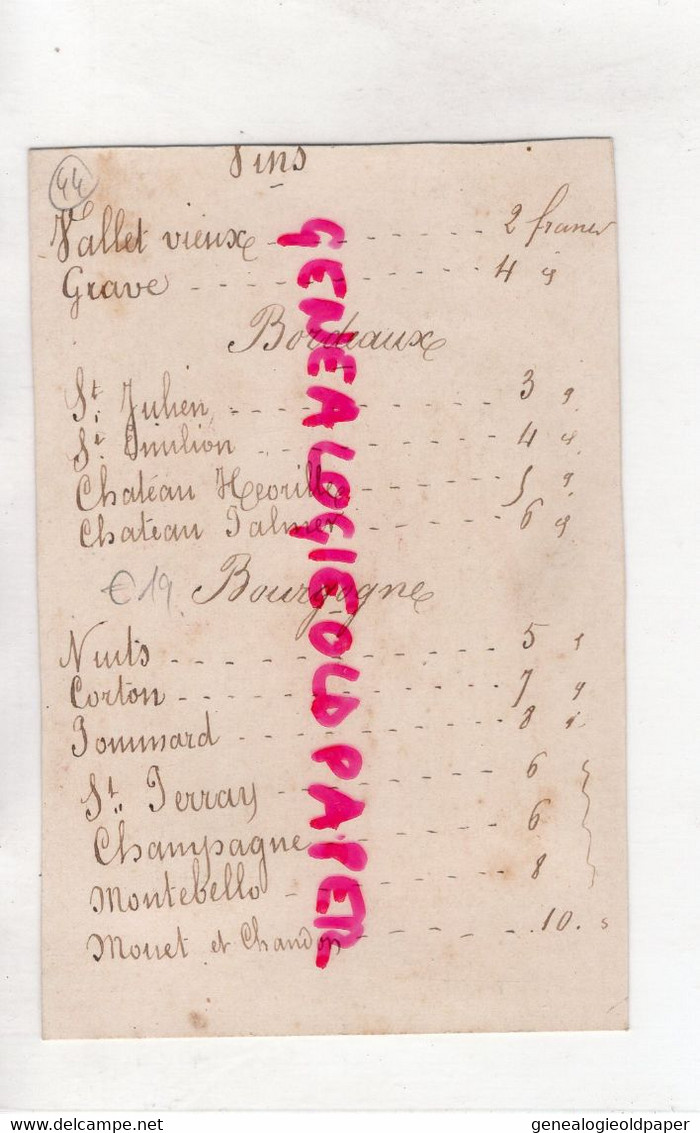 44
Vins
Vallet vieux - - - - - - 2 francs
Grave - - - - - - - - 4 "
Bordeaux
St. Julien - - - - - - - 3 "
St. Emilion - - - - - 4 "
Château - - - - 5 "
Chateau Palmer - - - - 6 "
€19. Bourgogne
Nuits - - - - - - - - 5 "
Corton - - - - - - - - 7 "
Pommard - - - - - - - 8 "
St. Perray - - - - - - 6
Champagne - - - - - 6
Montebello - - - - - 8
Mouet et Chandon - - - - 10. "
GENEALOGIEOLDPAPER
delcampe.net
genealogieoldpaper